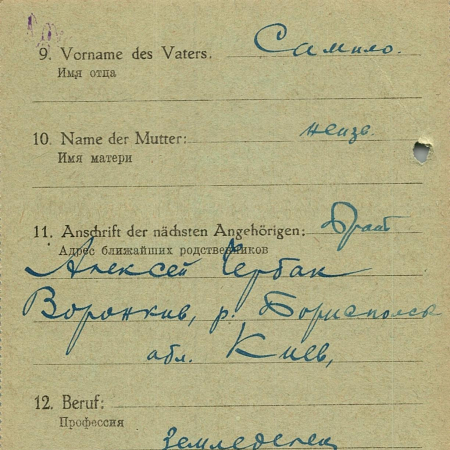 9. Vorname des Vaters. Самило.
Имя отца
10. Name der Mutter: неизв.
Имя матери
11. Anschrift der nächsten Angehörigen: Брат
Адрес ближайших родственников
Алексей Чербак
Воронкив, р. Бориополск
обл. Киев,
12. Beruf:
Профессия
Земледелец